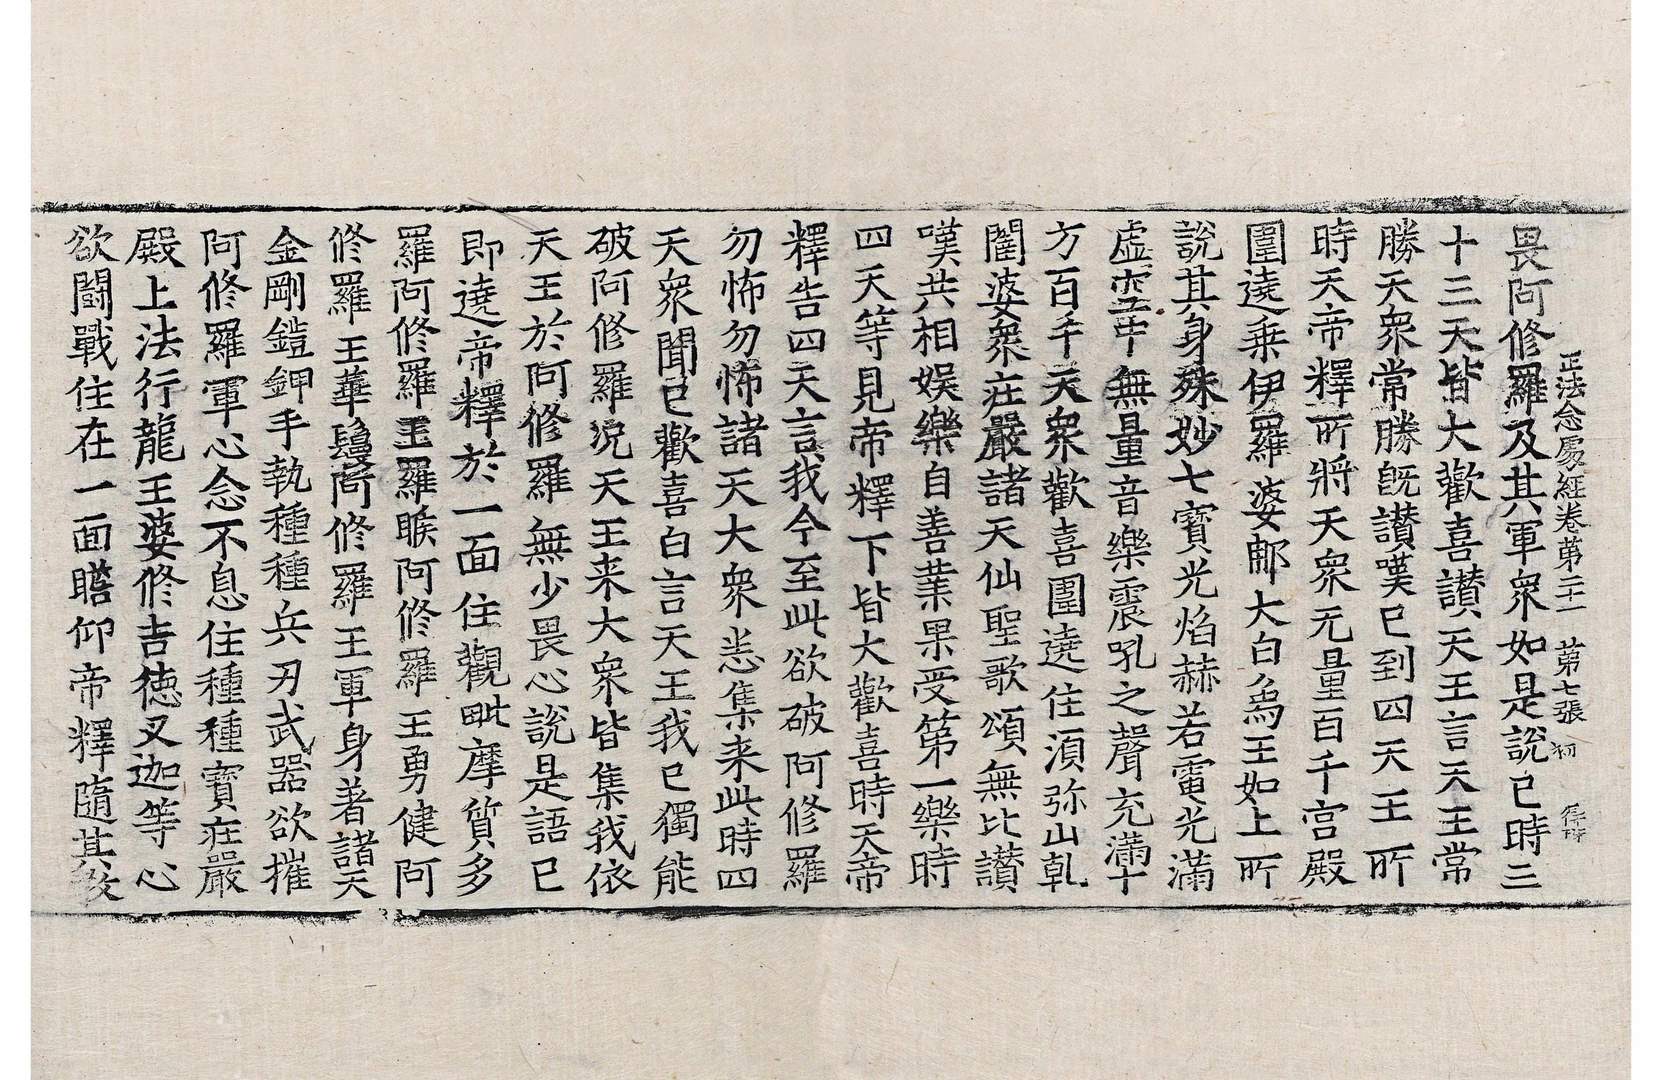 正法念處經卷第二十一 第七張 初
畏阿修羅及其軍眾如是說已時三
十三天皆大歡喜讚天王言天王常
勝天眾常勝旣讃嘆已到四天王所
時天帝釋所將天眾无量百千宮殿
圍遶乘伊羅婆那大白象王如上所
說其身殊妙七寶光焰赫若電光滿
虛空中無量音樂震吼之聲充滿十
方百千天眾歡喜圍遶住湏弥山乹
闥婆眾庄嚴諸天仙聖歌頌無比讃
嘆共相娛樂自善業果受第一樂時
四天等見帝釋下皆大歡喜時天帝
釋告四天言我今至此欲破阿修羅
勿怖勿怖諸天大眾悉集来此時四
天眾聞已歡喜白言天王我已獨能
破阿修羅況天王来大眾皆集我依
天王於阿修羅無少畏心說是語已
即遶帝釋於一面住觀毗摩質多
羅阿修羅王羅睺阿修羅王勇健阿
修羅王華鬘阿修羅王軍身著諸天
金剛鎧鉀手執種種兵刃武器欲摧
阿修羅軍心念不息住種種寶庄嚴
殿上法行龍王婆修吉德叉迦等心
欲鬪戰住在一面瞻仰帝釋隨其教